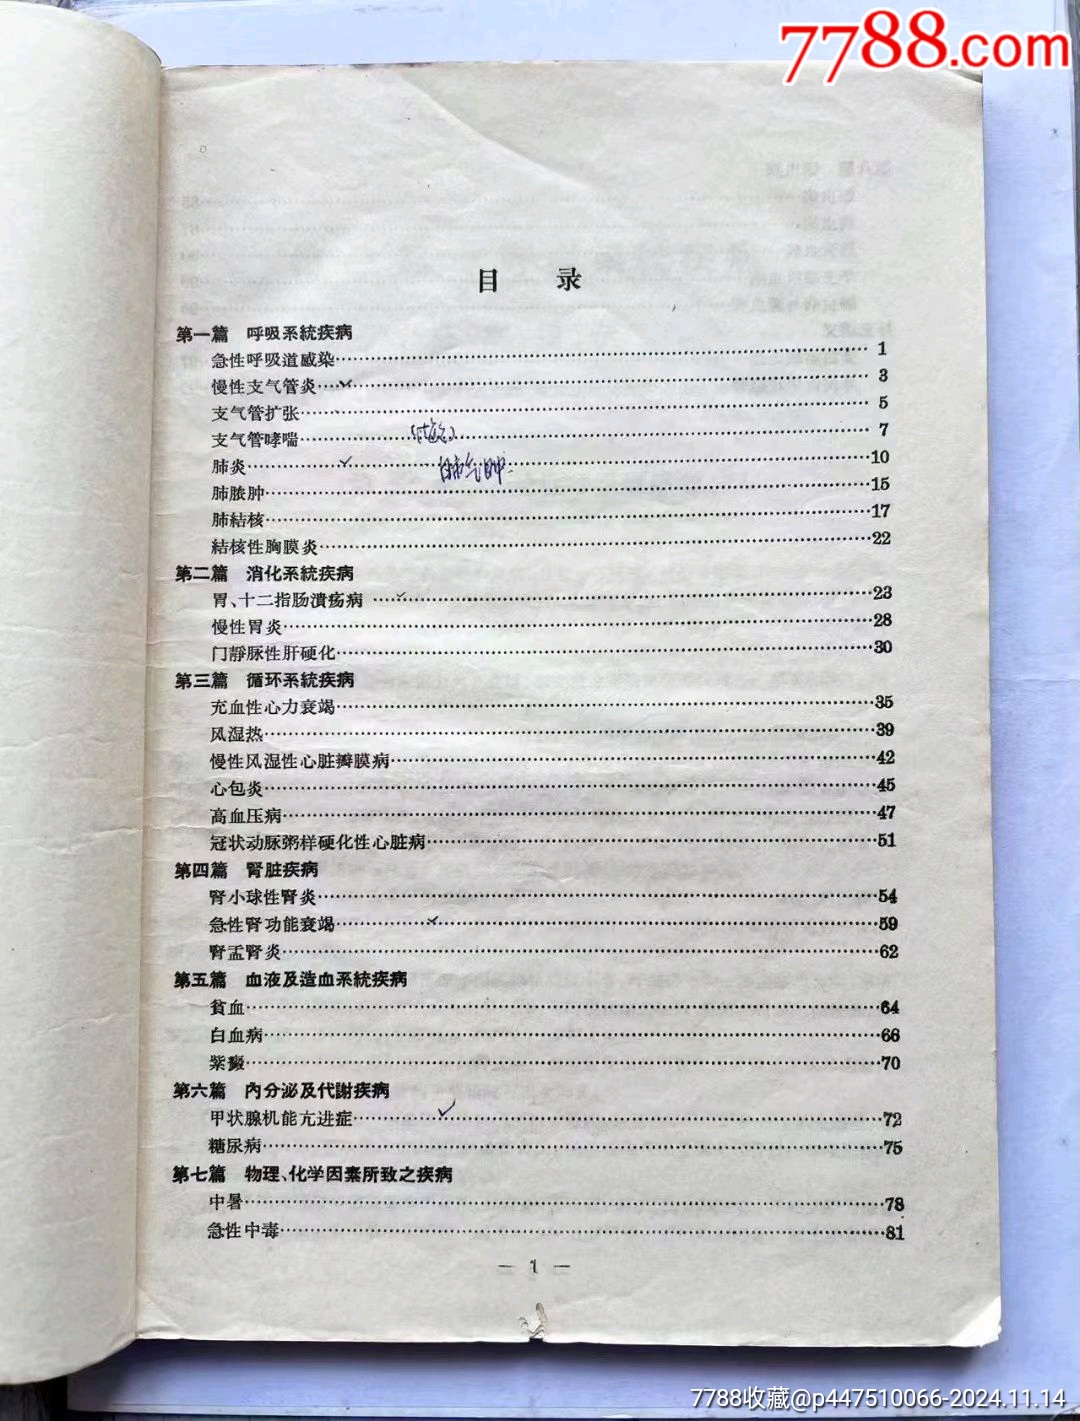 7788.com
目 录
第一篇 呼吸系統疾病
急性呼吸道感染 1
慢性支气管炎 3
支气管扩张 5
支气管哮喘 7
肺炎 肺气肿 10
肺脓肿 15
肺結核 17
結核性胸膜炎 22
第二篇 消化系統疾病
胃、十二指肠潰疡病 23
慢性胃炎 28
门靜脉性肝硬化 30
第三篇 循环系統疾病
充血性心力衰竭 35
风湿热 39
慢性风湿性心脏瓣膜病 42
心包炎 45
高血压病 47
冠状动脉粥样硬化性心脏病 51
第四篇 腎脏疾病
腎小球性腎炎 54
急性腎功能衰竭 59
腎盂腎炎 62
第五篇 血液及造血系統疾病
貧血 64
白血病 66
紫癜 70
第六篇 內分泌及代謝疾病
甲状腺机能亢进症 72
糖尿病 75
第七篇 物理、化学因素所致之疾病
中暑 78
急性中毒 81
— 1 —
7788收藏@p447510066-2024.11.14